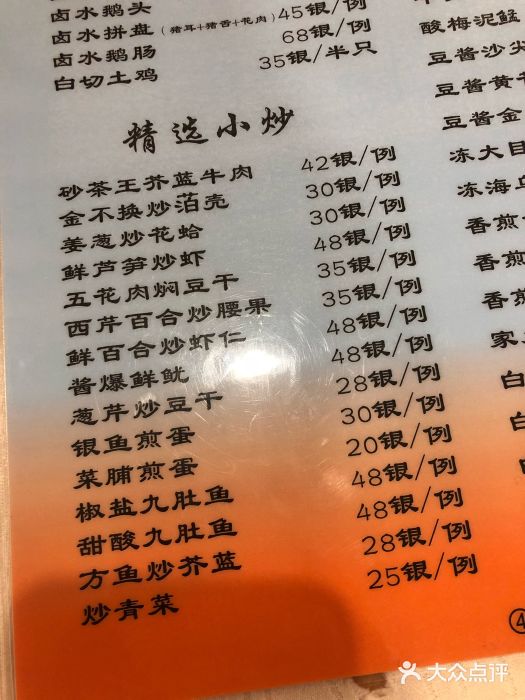 卤水鹅头
卤水拼盘（猪耳+猪舌+花肉） 45银/例
卤水鹅肠 68银/例
白切土鸡 35银/半只
精选小炒
砂茶王芥蓝牛肉 42银/例
金不换炒萡壳 30银/例
姜葱炒花蛤 30银/例
鲜芦笋炒虾 48银/例
五花肉焖豆干 35银/例
西芹百合炒腰果 35银/例
鲜百合炒虾仁 48银/例
酱爆鲜鱿 48银/例
葱芹炒豆干 28银/例
银鱼煎蛋 30银/例
菜脯煎蛋 20银/例
椒盐九肚鱼 48银/例
甜酸九肚鱼 48银/例
方鱼炒芥蓝 28银/例
炒青菜 25银/例
酸梅泥
豆酱沙尖
豆酱黄
豆酱金
冻大目
冻海
香煎
香煎
香煎
家
白
白
④
大众点评